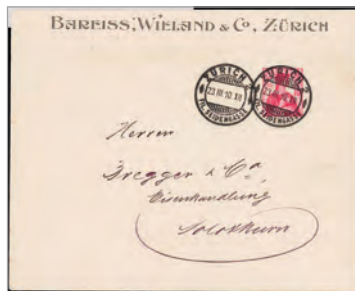 BAREISS, WIELAND & Co, ZÜRICH
ZÜRICH 2
23 III 10 XII
FIL. SEIDENGASSE
ZÜRICH 2
FIL. SEIDENGASSE
Herren
Bregger & Co
Eisenhandlung
Solothurn